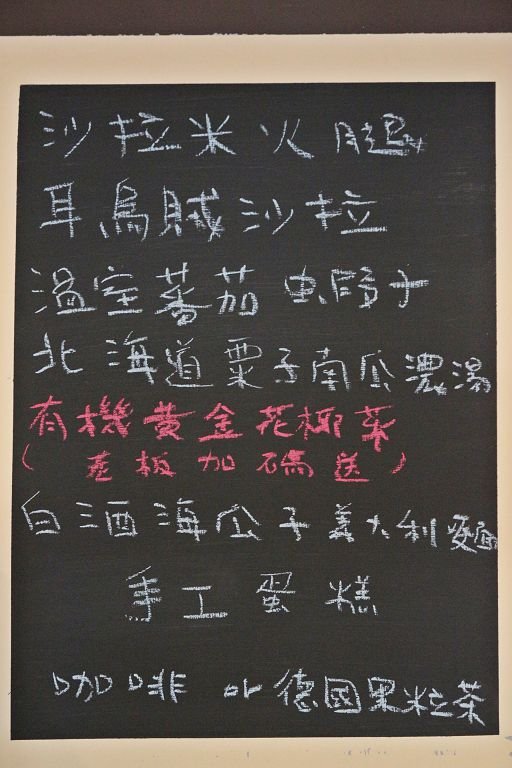 沙拉米火腿
耳烏賊沙拉
溫室蕃茄 虫脟子
北海道栗子南瓜濃湯
有機黃金花椰菜
(老板加碼送)
白酒海瓜子義大利麵
手工蛋糕
咖啡 or 德國果粒茶